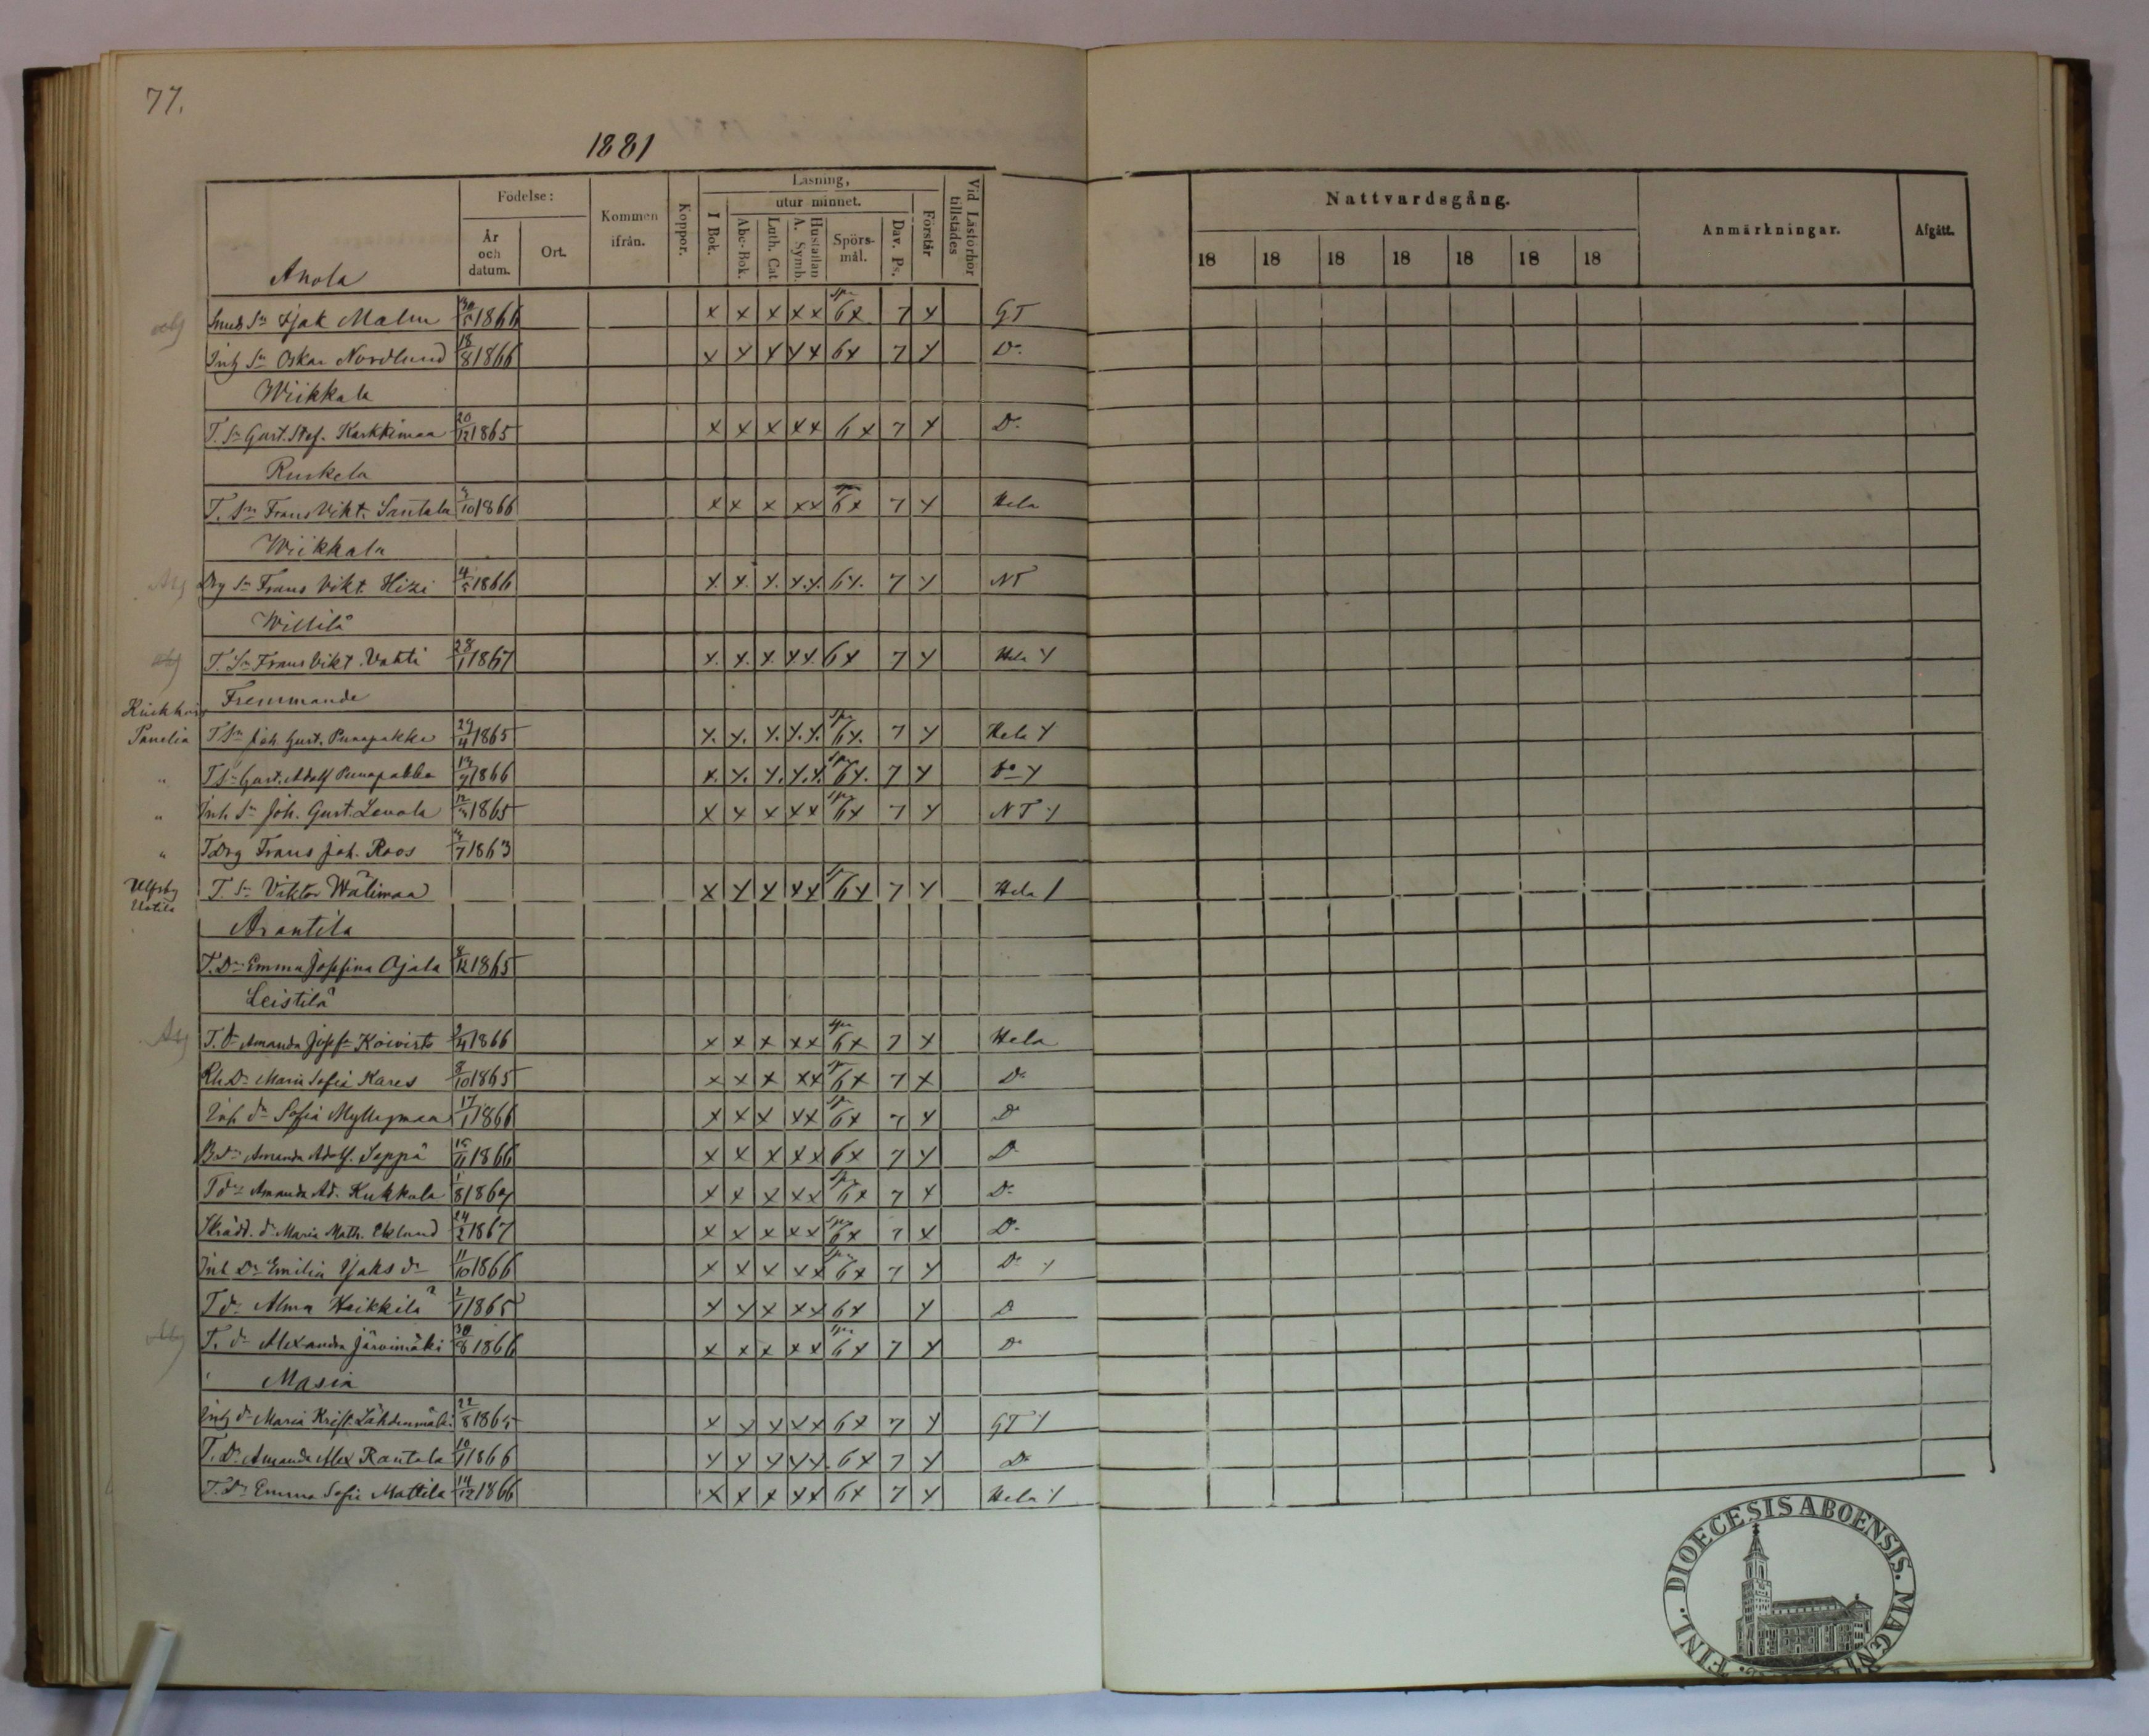 77.
1881
Födelse:
År och datum.
Ort.
Kommen ifrån.
Koppor.
Läsning,
I Bok.
utur minnet.
Abc-Bok.
Luth. Cat.
Hustaflan A. Symb.
Spörs-mål.
Dav. Ps.
Förstår
Vid Läsförhör tillstädes
Nattvardsgång.
18 18 18 18 18 18 18
Anmärkningar.
Afgått.
Anola
Smeds Sn Isak Malm 30/5 1866 x x x x x 6x 7 x GT
Inh Sn Oskar Nordlund 18/8 1866 x x x x x 6x 7 x Do
Wiikkala
T. Sn Gust. Stef. Karkkimaa 20/12 1865 x x x x x 6x 7 x Do
Ruskela
T. Sn Frans Vikt. Santala /10 1866 x x x x x 6x 7 x Hela
Wiikkala
Drg Sn Frans Vikt. Hizi 4/5 1866 x x x x x 6x 7 x NT
Willilä
T. Sn Frans Vikt. Vahti 28/1 1867 x x x x x 6x 7 x Hela x
Fremmande
Panelia T Sn Joh. Gust. Punapakka 29/4 1865 x x x x x 6x 7 x Hela x
" T Sn Gust. Adolf Punapakka 1866 x x x x x 6x 7 x Do x
" Inh Sn Joh. Gust. Levola 1865 x x x x x 6x 7 x NT x
" T Drg Frans Joh. Roos /7 1863
Ulfsby
T. Sn Viktor Wälimaa x x x x x 6x 7 x Hela
Arantila
T. Dr Emma Josefina Ojala /12 1865
Leistilä
T. dr Amanda Josef. Koivisto 2/4 1866 x x x x x 6x 7 x Hela
Rh Dr Maria Sofia Kares 8/10 1865 x x x x x 6x 7 x Do
Inh. dr Sofia Myllymaa 17/1 1866 x x x x x 6x 7 x D
B dr Amanda Adolf. Seppä 15/11 1866 x x x x x 6x 7 x D
T dr Amanda Ad. Kukkola 1/8 1867 x x x x x 6x 7 x Do
Skrädd. dr Maria Math. Eklund 24/2 1867 x x x x x 6x 7 x Do
Inh Dr Emilia Isaks dr 11/10 1866 x x x x x 6x 7 x Do x
T dr Alma Heikkilä 2/1 1865 x x x x x 6x x D
T. dr Alexandra Järvimäki 30/8 1866 x x x x x 6x 7 x Do
Masia
Inh dr Maria Krist. Lähdenmäki 22/8 1865 x x x x x 6x 7 x GT x
T. Dr Amanda Alex Rantala 10/1 1866 x x x x x 6x 7 x Do
T. Dr Emma Sofia Mattila 14/12 1866 x x x x x 6x 7 x Hela x
DIOECESIS ABOENSIS. MAGNI FINL.